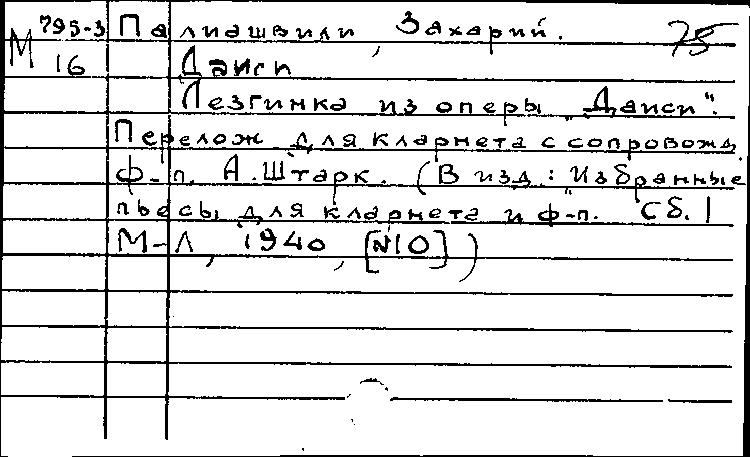 М 795-3 Палиашвили, Захарий. 75
16 Даиси
Лезгинка из оперы „Даиси".
Перелож для кларнета с сопровожд.
ф-п. А. Штарк. (В изд: "Избранные
пьесы для кларнета и ф-п. Сб. 1
М-Л, 1940, [№10])